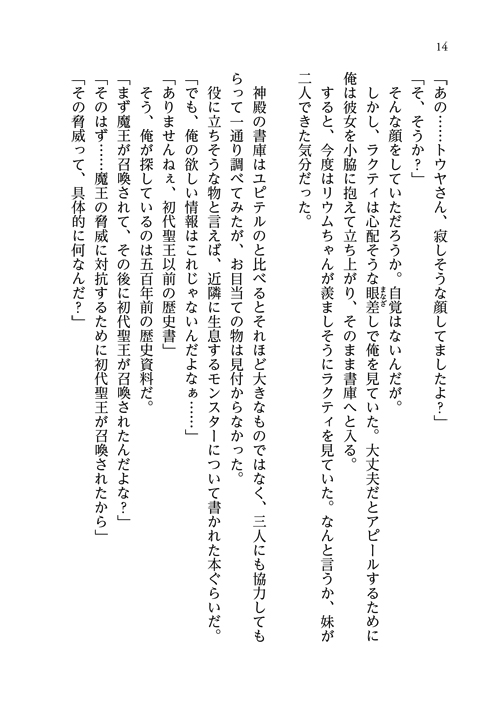 14
「あの……トウヤさん、寂しそうな顔してましたよ?」
「そ、そうか?」
そんな顔をしていただろうか。自覚はないんだが。
しかし、ラクティは心配そうな眼差しで俺を見ていた。大丈夫だとアピールするために
まなざ
俺は彼女を小脇に抱えて立ち上がり、そのまま書庫へと入る。
すると、今度はリウムちゃんが羨ましそうにラクティを見ていた。なんと言うか、妹が
二人できた気分だった。
神殿の書庫はユピテルのと比べるとそれほど大きなものではなく、三人にも協力しても
らって一通り調べてみたが、お目当ての物は見付からなかった。
役に立ちそうな物と言えば、近隣に生息するモンスターについて書かれた本ぐらいだ。
「でも、俺の欲しい情報はこれじゃないんだよなぁ……」
「ありませんねぇ、初代聖王以前の歴史書」
そう、俺が探しているのは五百年前の歴史資料だ。
「まず魔王が召喚されて、その後に初代聖王が召喚されたんだよな?」
「そのはず……魔王の脅威に対抗するために初代聖王が召喚されたから」
「その脅威って、具体的に何なんだ?」